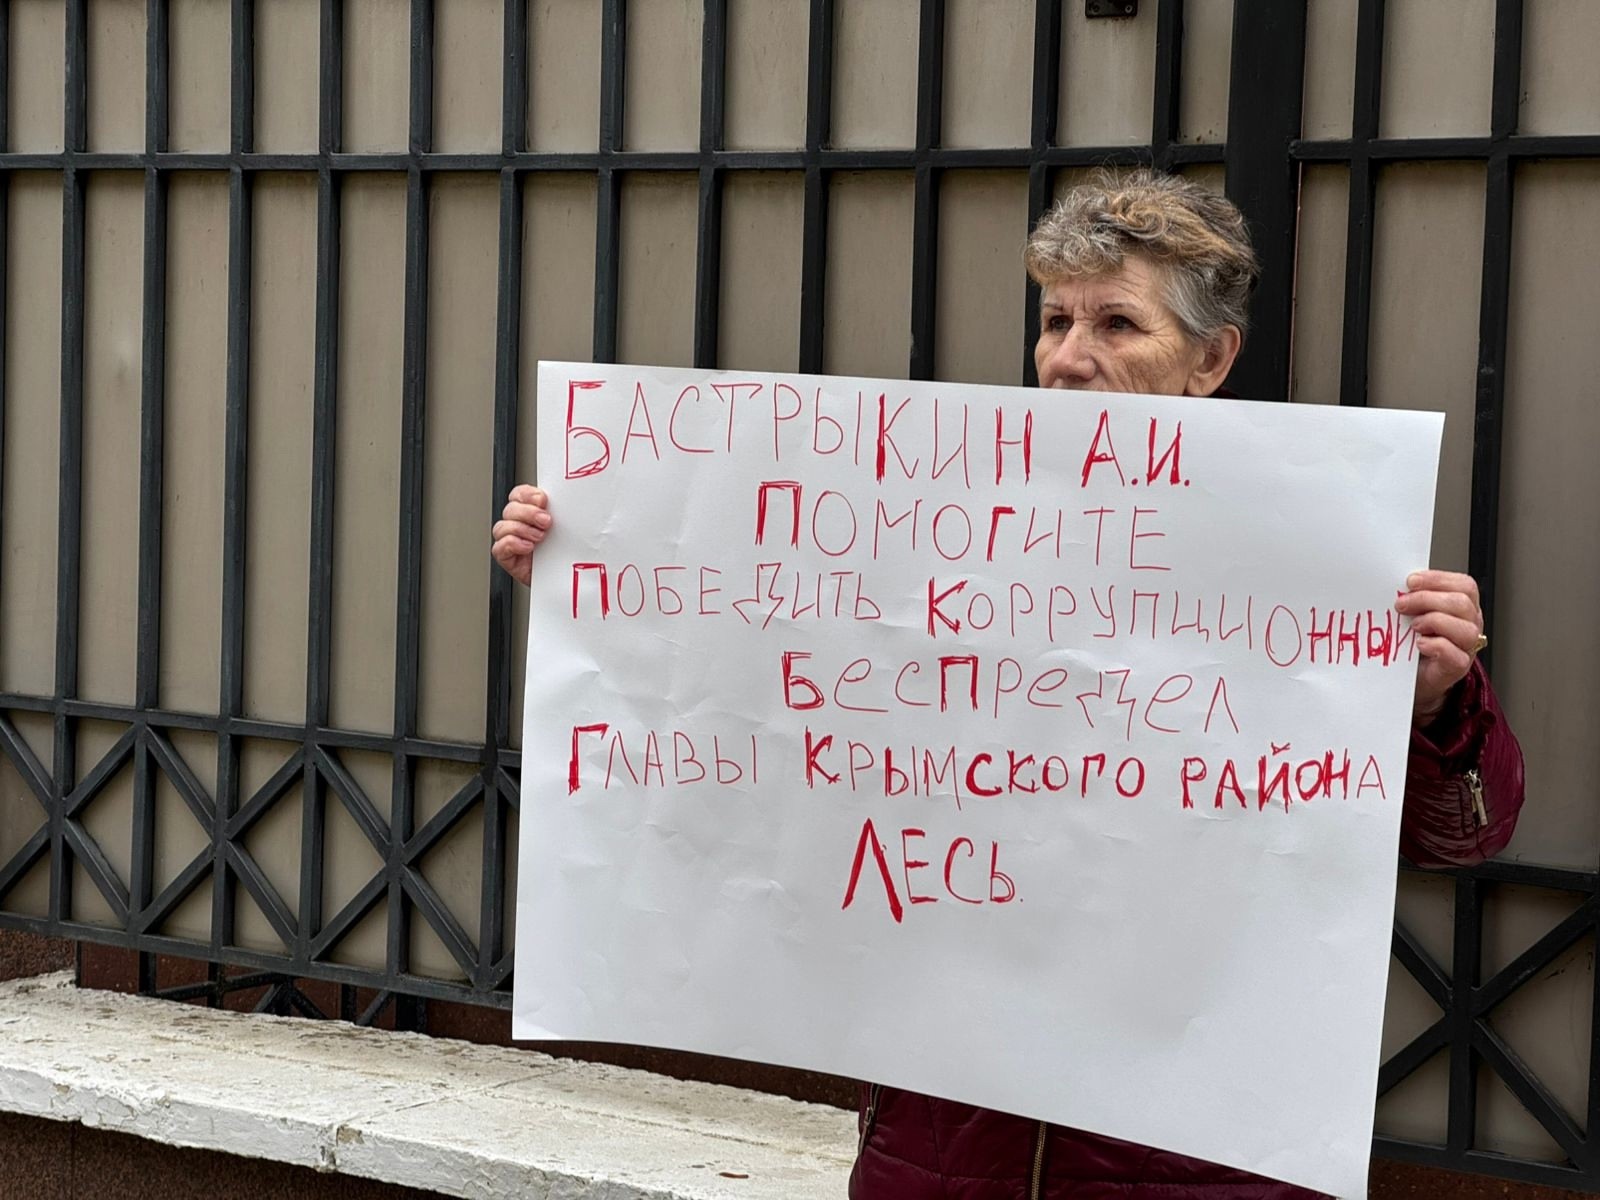 БАСТРЫКИН А.И.
ПОМОГИТЕ
ПОБЕДИТЬ КОРРУПЦИОННЫЙ
БеспРедел
ГЛАВЫ КРЫМСКОГО РАЙОНА
ЛЕСЬ.